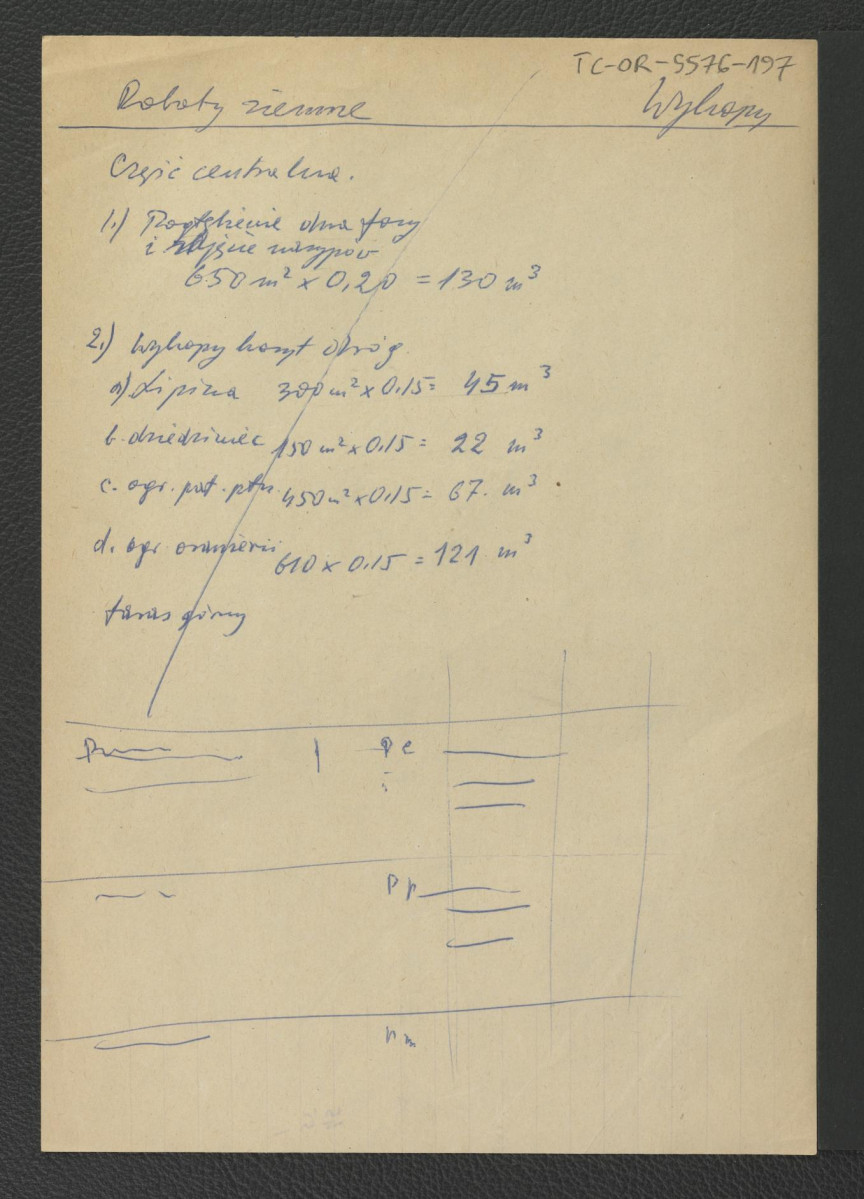 TC-OR-5576-197
Roboty ziemne Wykopy
Część centralna.
1.) Pogłębienie dna fosy
i zdjęcie nasypów
650 m² x 0,20 = 130 m³
2.) Wykopy koryt dróg
a) Lipina 300 m² x 0.15 = 45 m³
b. dziedziniec 150 m² x 0.15 = 22 m³
c. ogr. pół. ptn. 450 m² x 0.15 = 67. m³
d. ogr. oranżerii 610 x 0.15 = 121 m³
taras górny
Pc
Pp